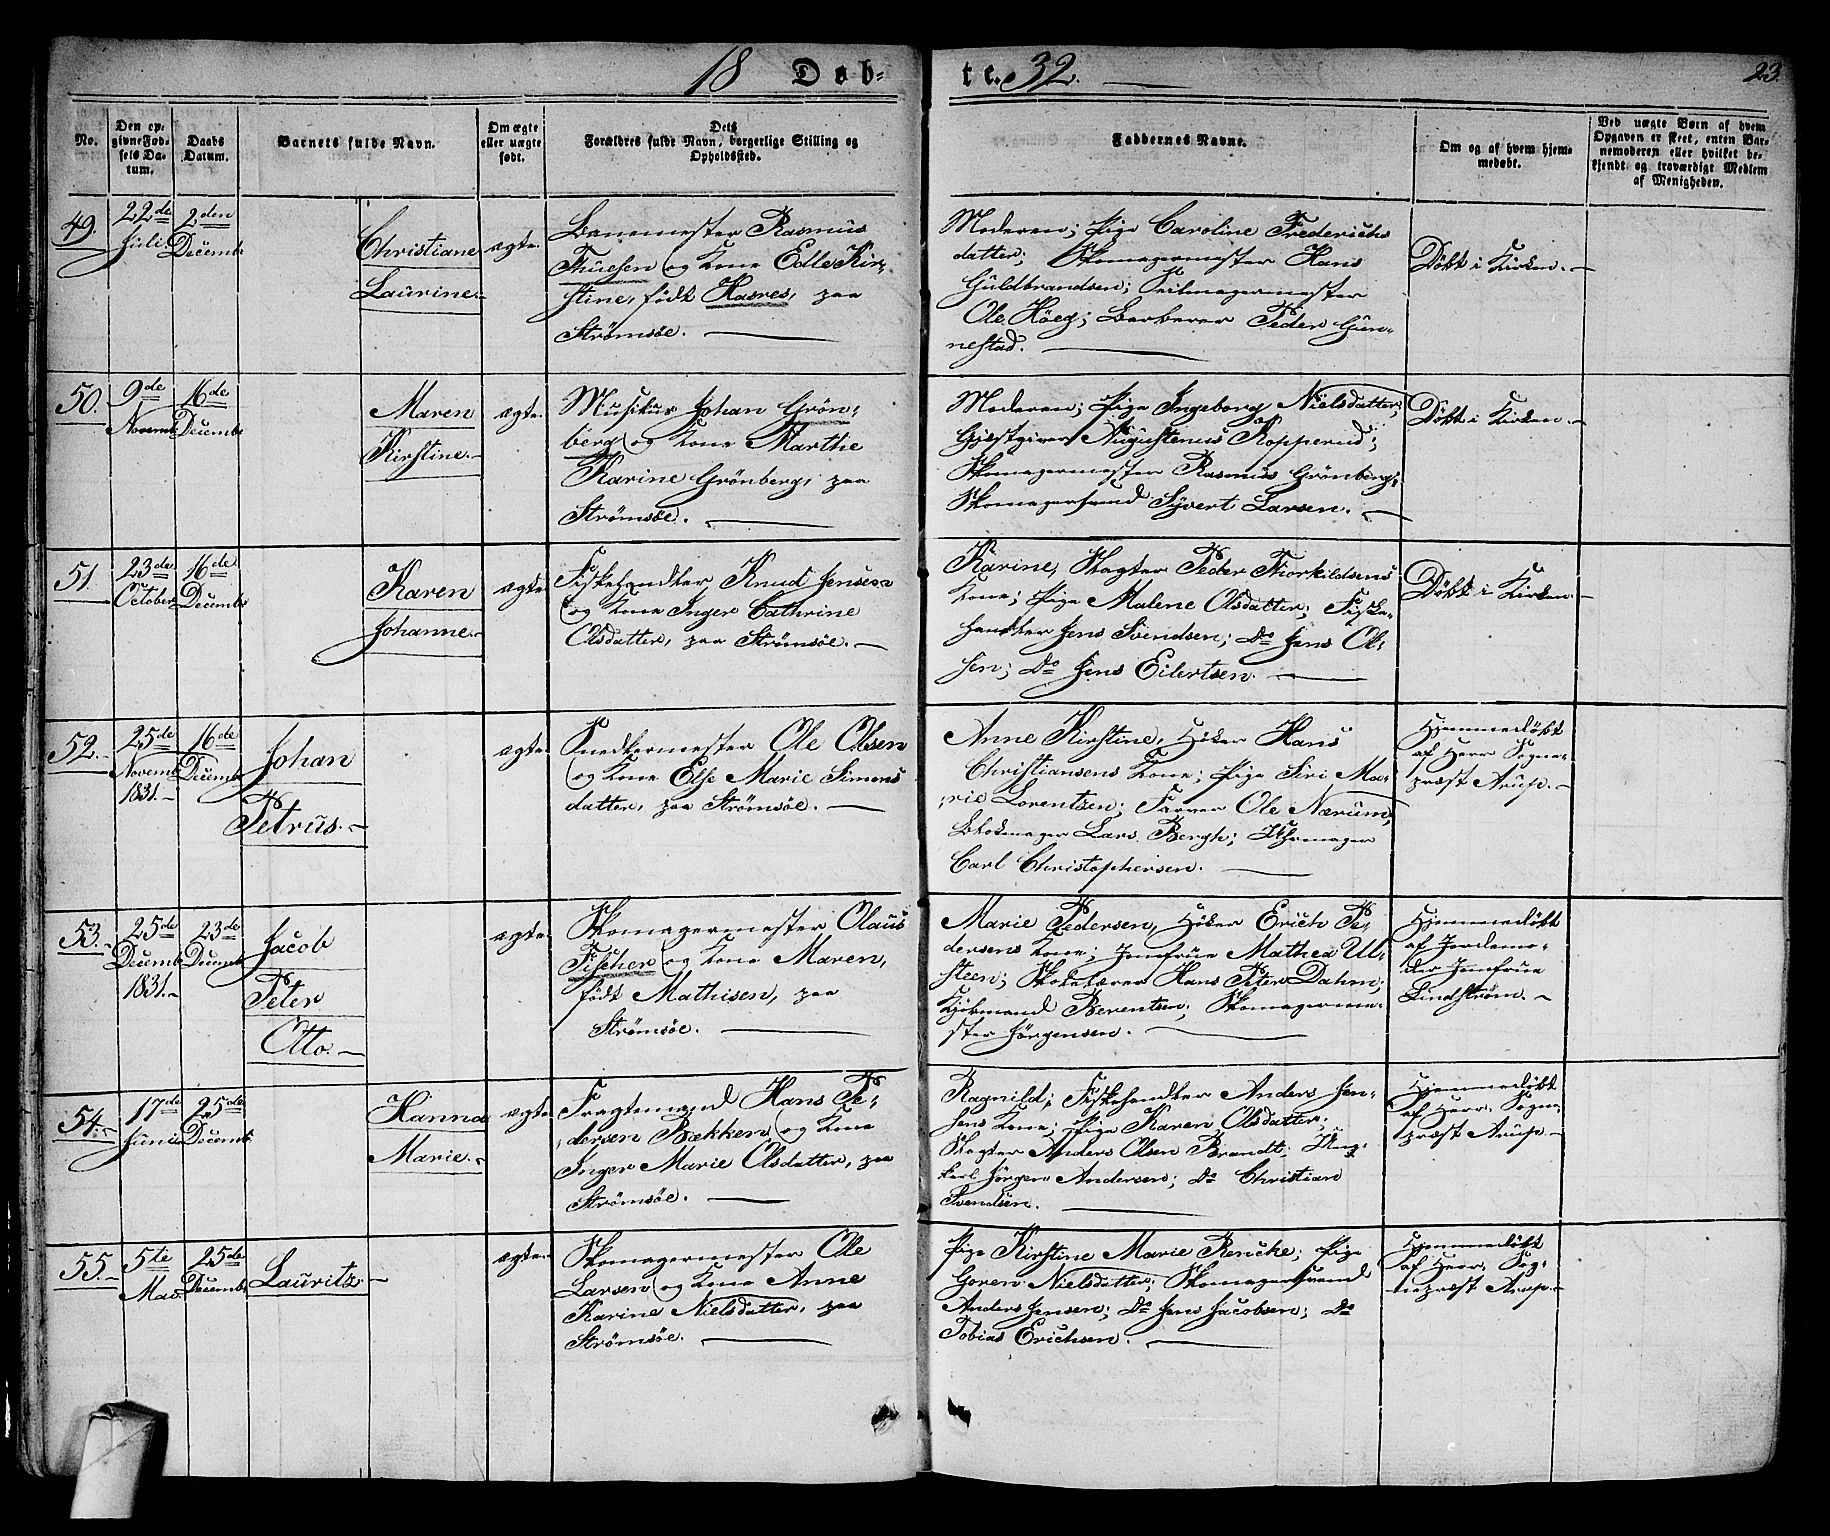 18 Døb-
te. 32.
23.
No.
Den op-
givne Fød-
sels Da-
tum.
Daabs
Datum.
Barnets fulde Navn.
Om ægte
eller uægte
født.
Dets
Forældres fulde Navn, borgerlige Stilling og
Opholdssted.
Faddernes Navne.
Om og af hvem hjem-
medøbt.
Ved uægte Børn af hvem
Opgaven er skeet, enten Bar-
nemoderen eller hvilket be-
kjendt og troværdigt Medlem
af Menigheden.
49.
22de
Juli
2den
Decemb
Christiane
Laurine.
ægte.
Rasmus
Thuesen og Kone Edle Kir-
stine, født Hasres, paa
Strømsøe.
Moderen; Pige Caroline Frederichs
datter; Skomagermester Hans
Guldbrandsen; Seilmagermester
Ole Höeg; Barberer Peder Gun-
nestad.
Döbt i Kirken.
50.
9de
Novemb
16de
Decemb
Maren
Kirstine.
ægte.
Musikus Johan Grön-
berg og Kone Marthe
Karine Grönberg, paa
Strømsöe.
Moderen; Pige Ingeborg Nielsdatter;
Gjestgiver Augustenus Kopperud;
Skomagermester Rasmus Grönberg;
Skomagersvend Syvert Larsen.
Döbt i Kirken.
51.
23de
October
16de
Decemb
Karen
Johanne.
ægte.
Fiskehandler Knud Jensen
og Kone Inger Cathrine
Olsdatter, paa Strömsöe.
Karine, Slagter Peder Thorkildsens
Kone; Pige Malene Olsdatter; Fiske-
handler Jens Svendsen; Do Jens Ol-
sen; Do Jens Eilertsen.
Döbt i Kirken.
52.
25de
Novemb
1831.
16de
Decemb
Johan
Petrus.
ægte.
Snedkermester Ole Olsen
og Kone Else Marie Simens
datter, paa Strömsöe.
Anne Kirstine, Höker Hans
Christiansens Kone; Pige Siri Ma-
rie Lorentzen; Farver Ole Nærum,
Blokmager Lars Bergh; Uhrmager
Carl Christophersen.
Hjemmedöbt
af Herr Sogne-
præst Arup.
53.
25de
Decemb
1831.
23de
Decemb
Jacob
Peter
Otto.
ægte.
Skomagermester Olaus
Fischer og Kone Maren,
født Mathisen, paa
Strömsöe.
Marie Pedersen, Höker Erich Pe-
dersens Kone; Jomfrue Mathea Ul-
steen; Skolelærer Hans Peter Dahm;
Kjöbmand Berentsen; Skomagerme-
ster Jörgensen.
Hjemmedöbt
af Jordemo-
der Jomfrue
Lindström.
54.
17de
Junii
25de
Decemb.
Hanna
Marie.
ægte.
Fragtemand Hans Pe-
dersen Bækken og Kone
Inger Marie Olsdatter, paa
Strömsöe.
Ragnild, Fiskehandler Anders Jen-
sens Kone; Pige Karen Olsdatter;
Slagter Anders Olsen Brandt; Ung-
karl Jörgen Andersen; Do Christian
Svendsen.
Hjemmedöbt
af Herr Sogne-
præst Arup.
55.
5te
Mai.
25de
Decemb.
Lauritz
ægte.
Skomagermester Ole
Larsen og Kone Anne
Karine Nielsdatter, paa
Strömsöe.
Pige Kirstine Marie Rencke; Pige
Goren Nielsdatter; Skomagersvend
Anders Jensen; Do Jens Jacobsen; Do
Tobias Erichsen.
Hjemmedöbt
af Herr Sog-
nepræst Arup.